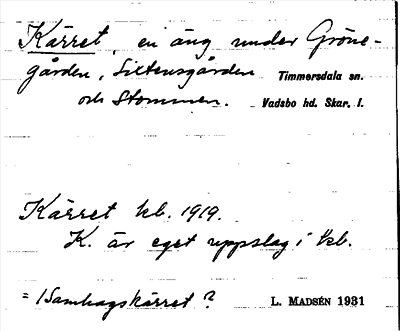 Kärret, en äng under Gröne-
gården, Sixtensgården Timmersdala sn.
och Stommen. Vadsbo hd. Skar. l.
Kärret kb. 1919.
K. är eget uppslag i kb.
= /Samhagskärret? L. MADSÉN 1931